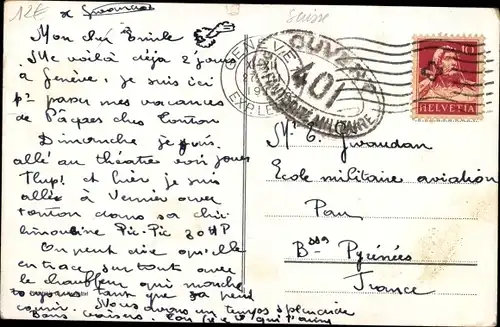 12€
Suisse
Mon cher Emile
Me voilà déjà 2 jours
à Genève, je suis ici
pr passer mes vacances
de Pâques chez Tonton
Dimanche je suis
allé au théatre voir jouer
et hier je suis
allée à Vernier avec
tonton dans sa chic
limousine Pic-Pic 30 HP
On peut dire qu'elle
en trace surtout avec
le chauffeur qui marche
toujours tant que ça peut
courir. Nous avons un temps splendide
Bons baisers.
GENÈVE
EXP. LE
OUVERT
401
PAR L'AUTORITÉ MILITAIRE
10
HELVETIA
Mr E. Jwandan
Ecole militaire aviation
Pau
Bsses Pyrénées
France